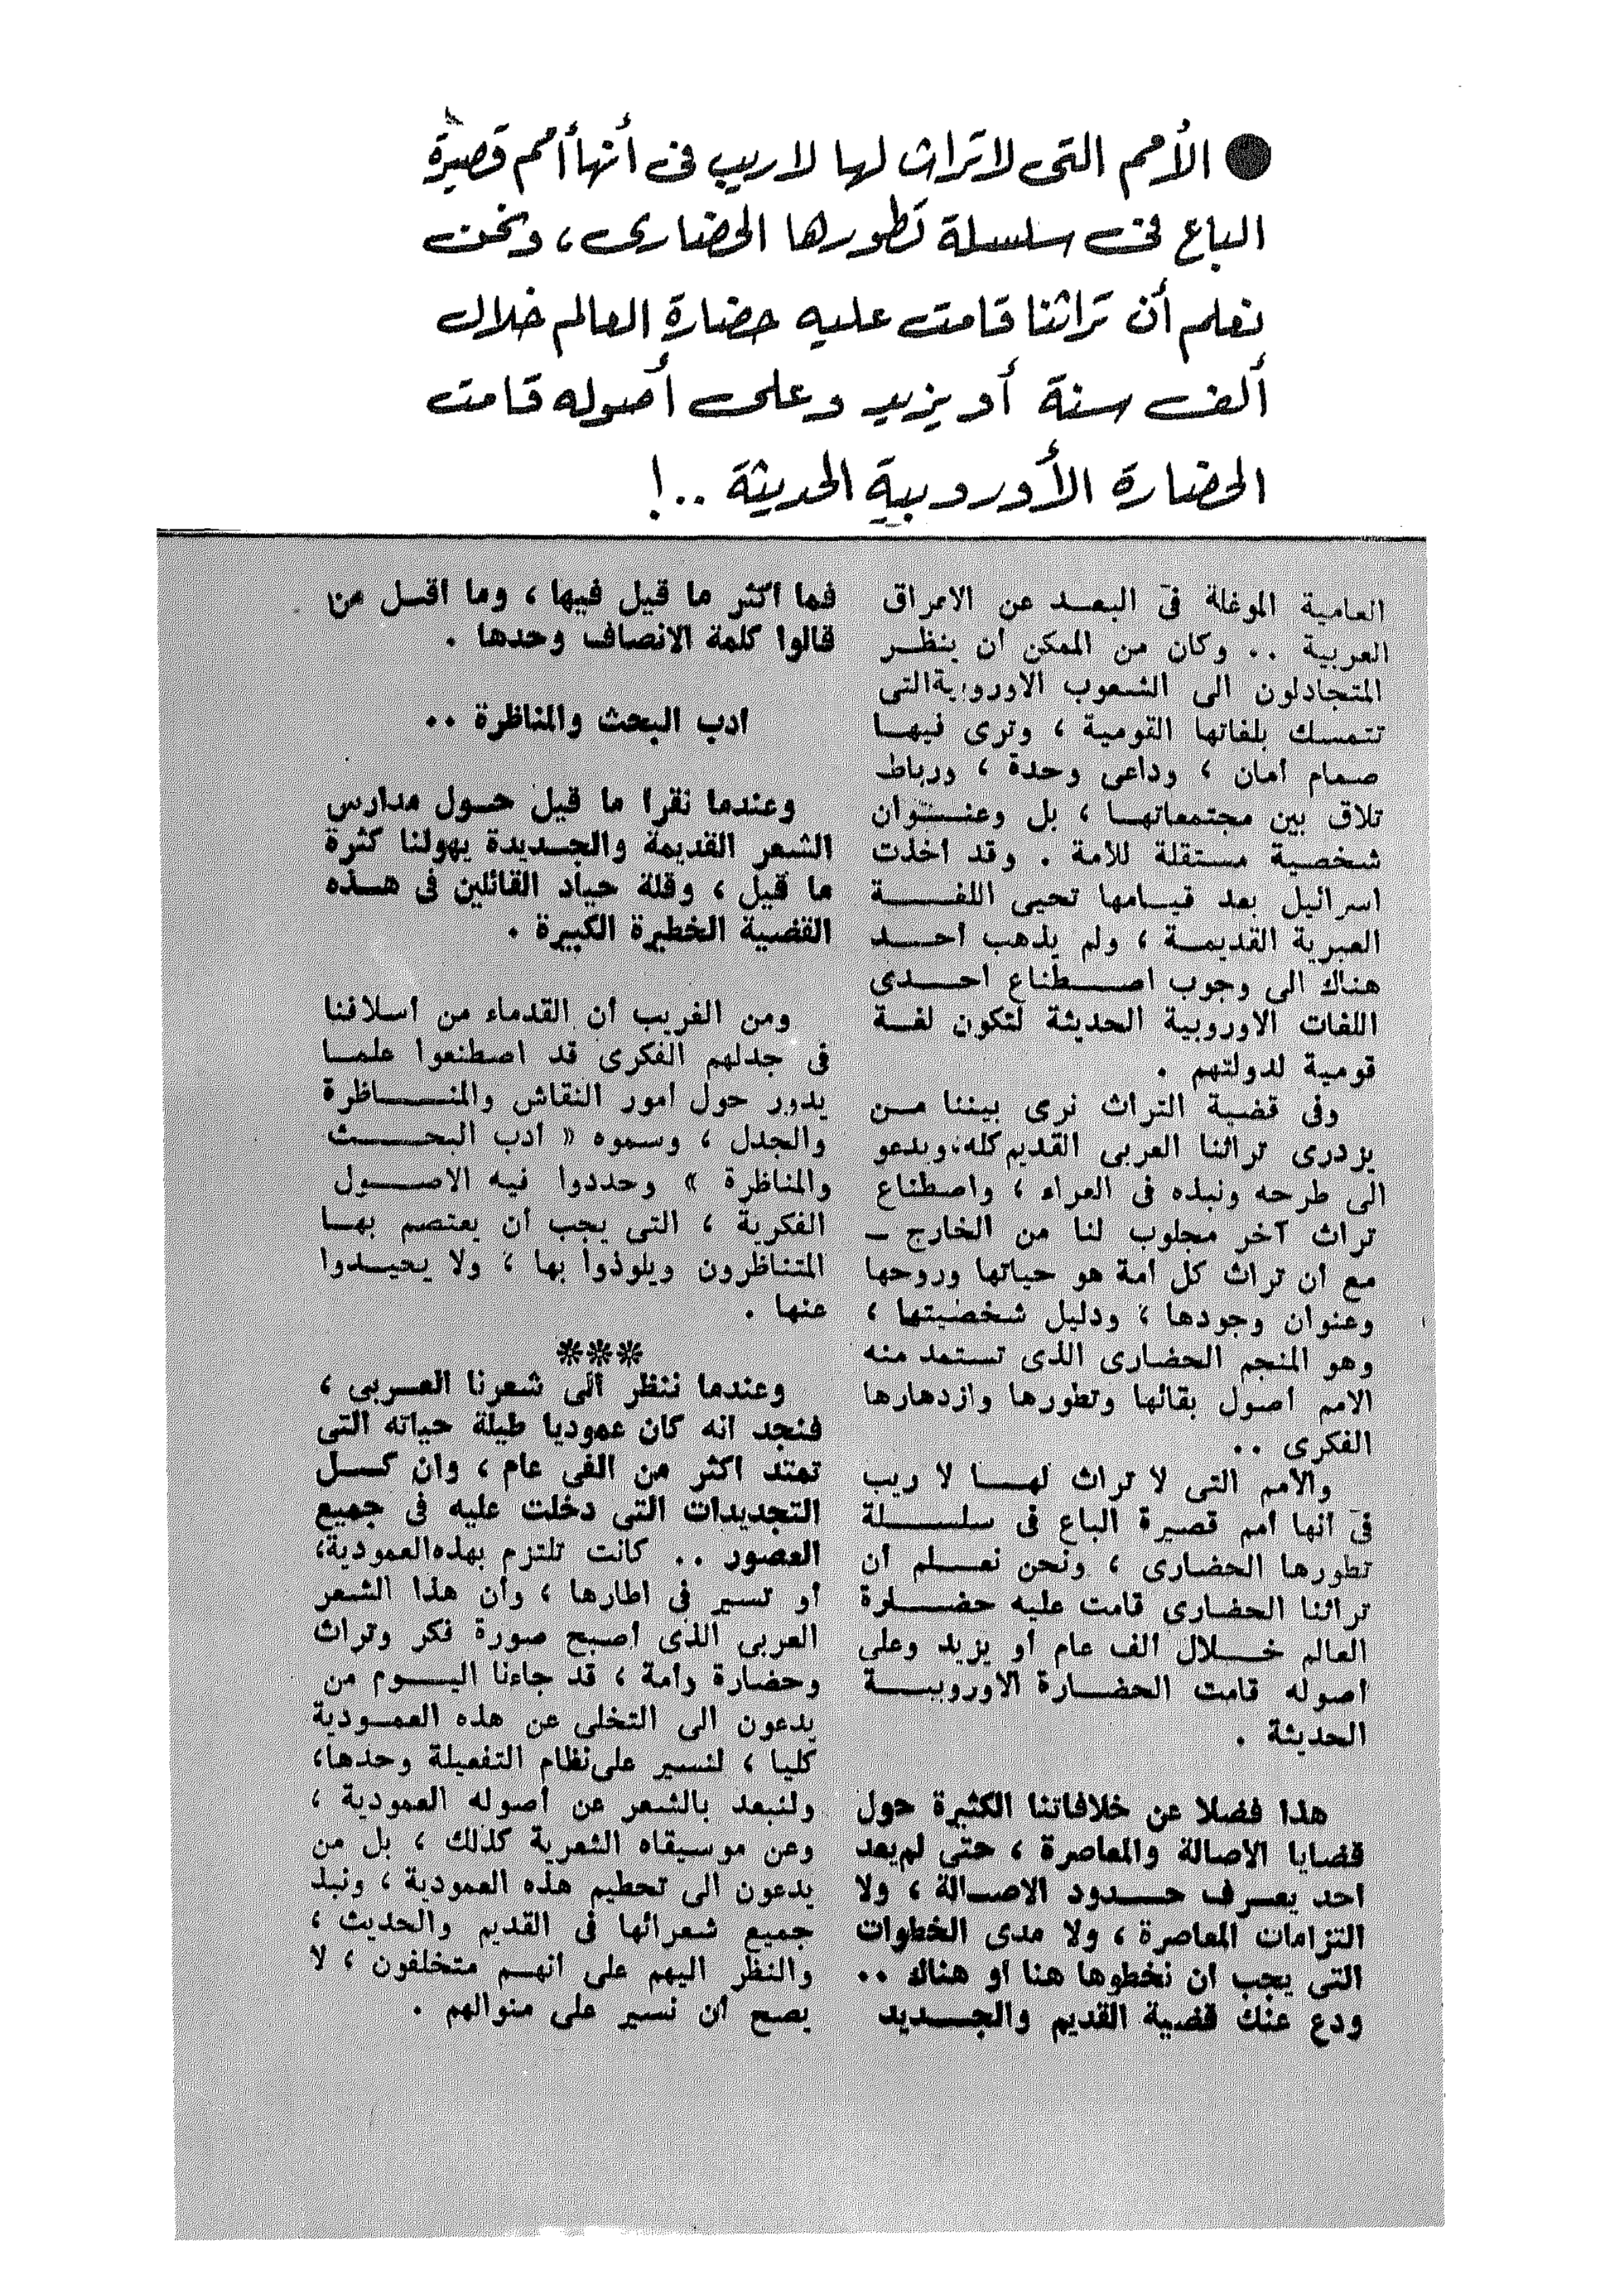 ● الأمم التى لا تراث لها لا ريب فى أنها أمم قصيرة
الباع فى سلسلة تطورها الحضارى، ونحن
نعلم أن تراثنا قامت عليه حضارة العالم خلال
ألف سنة أو يزيد وعلى أصوله قامت
الحضارة الأوروبية الحديثة ..!
العامية الموغلة فى البعــد عن الاعراق
العربية .. وكان من الممكن ان ينظــر
المتجادلون الى الشعوب الاوروبية التى
تتمسك بلغاتها القومية ، وترى فيهــا
صمام أمان ، وداعى وحدة ، ورباط
تلاق بين مجتمعاتهــا ، بل وعنــوان
شخصية مستقلة للأمة . وقد اخذت
اسرائيل بعد قيــامها تحيى اللغــــة
العبرية القديمــة ، ولم يذهب احــد
هناك الى وجوب اصــطناع احــدى
اللغات الاوروبية الحديثة لتكون لغــة
قومية لدولتهم .
وفى قضية التراث نرى بيننا مــن
يزدرى تراثنا العربى القديم كله، ويدعو
الى طرحه ونبذه فى العراء ، واصطناع
تراث آخر مجلوب لنا من الخارج ــ
مع ان تراث كل أمة هو حياتها وروحها
وعنوان وجودها ، ودليل شخصيتها ،
وهو المنجم الحضارى الذى تستمد منه
الامم اصول بقائها وتطورها وازدهارها
الفكرى ..
والامم التى لا تراث لهــا لا ريب
فى انها امم قصيرة الباع فى سلســلة
تطورها الحضارى ، ونحن نعــلم أن
تراثنا الحضارى قامت عليه حضــارة
العالم خــلال الف عام أو يزيد وعلى
اصوله قامت الحضــارة الاوروبيــة
الحديثة .
هذا فضلا عن خلافاتنا الكثيرة حول
قضايا الاصالة والمعاصرة ، حتى لم يعد
احد يعــرف حــدود الاصــالة ، ولا
التزامات المعاصرة ، ولا مدى الخطوات
التى يجب ان نخطوها هنا او هناك ..
ودع عنك قضية القديم والجــديد
فما اكثر ما قيل فيها ، وما اقــل من
قالوا كلمة الانصاف وحدها .
ادب البحث والمناظرة ..
وعندما نقرا ما قيل حــول مدارس
الشعر القديمة والجــديدة يهولنا كثرة
ما قيل ، وقلة حياد القائلين فى هــذه
القضية الخطيرة الكبيرة .
ومن الغريب أن القدماء من أسلافنا
فى جدلهم الفكرى قد اصطنعوا علمــا
يدور حول أمور النقاش والمنــــاظرة
والجدل ، وسموه « أدب البحــــث
والمناظرة » وحددوا فيه الاصــول
الفكرية ، التى يجب أن يعتصم بهــا
المتناظرون ويلوذوا بها ، ولا يحيــدوا
عنها .
***
وعندما ننظر الى شعرنا العــربى ،
فنجد انه كان عموديا طيلة حياته التى
تمتد اكثر من الفى عام ، وان كــل
التجديدات التى دخلت عليه فى جميع
العصور .. كانت تلتزم بهذه العمودية،
أو تسير فى اطارها ، وأن هذا الشعر
العربى الذى أصبح صورة فكر وتراث
وحضارة وأمة ، قد جاءنا اليــوم من
يدعون الى التخلى عن هذه العمــودية
كليا ، لنسير على نظام التفعيلة وحدها،
ولنبعد بالشعر عن أصوله العمودية ،
وعن موسيقاه الشعرية كذلك ، بل من
يدعون الى تحطيم هذه العمودية ، ونبذ
جميع شعرائها فى القديم والحديث ،
والنظر اليهم على أنهــم متخلفون ، لا
يصح أن نسير على منوالهم .